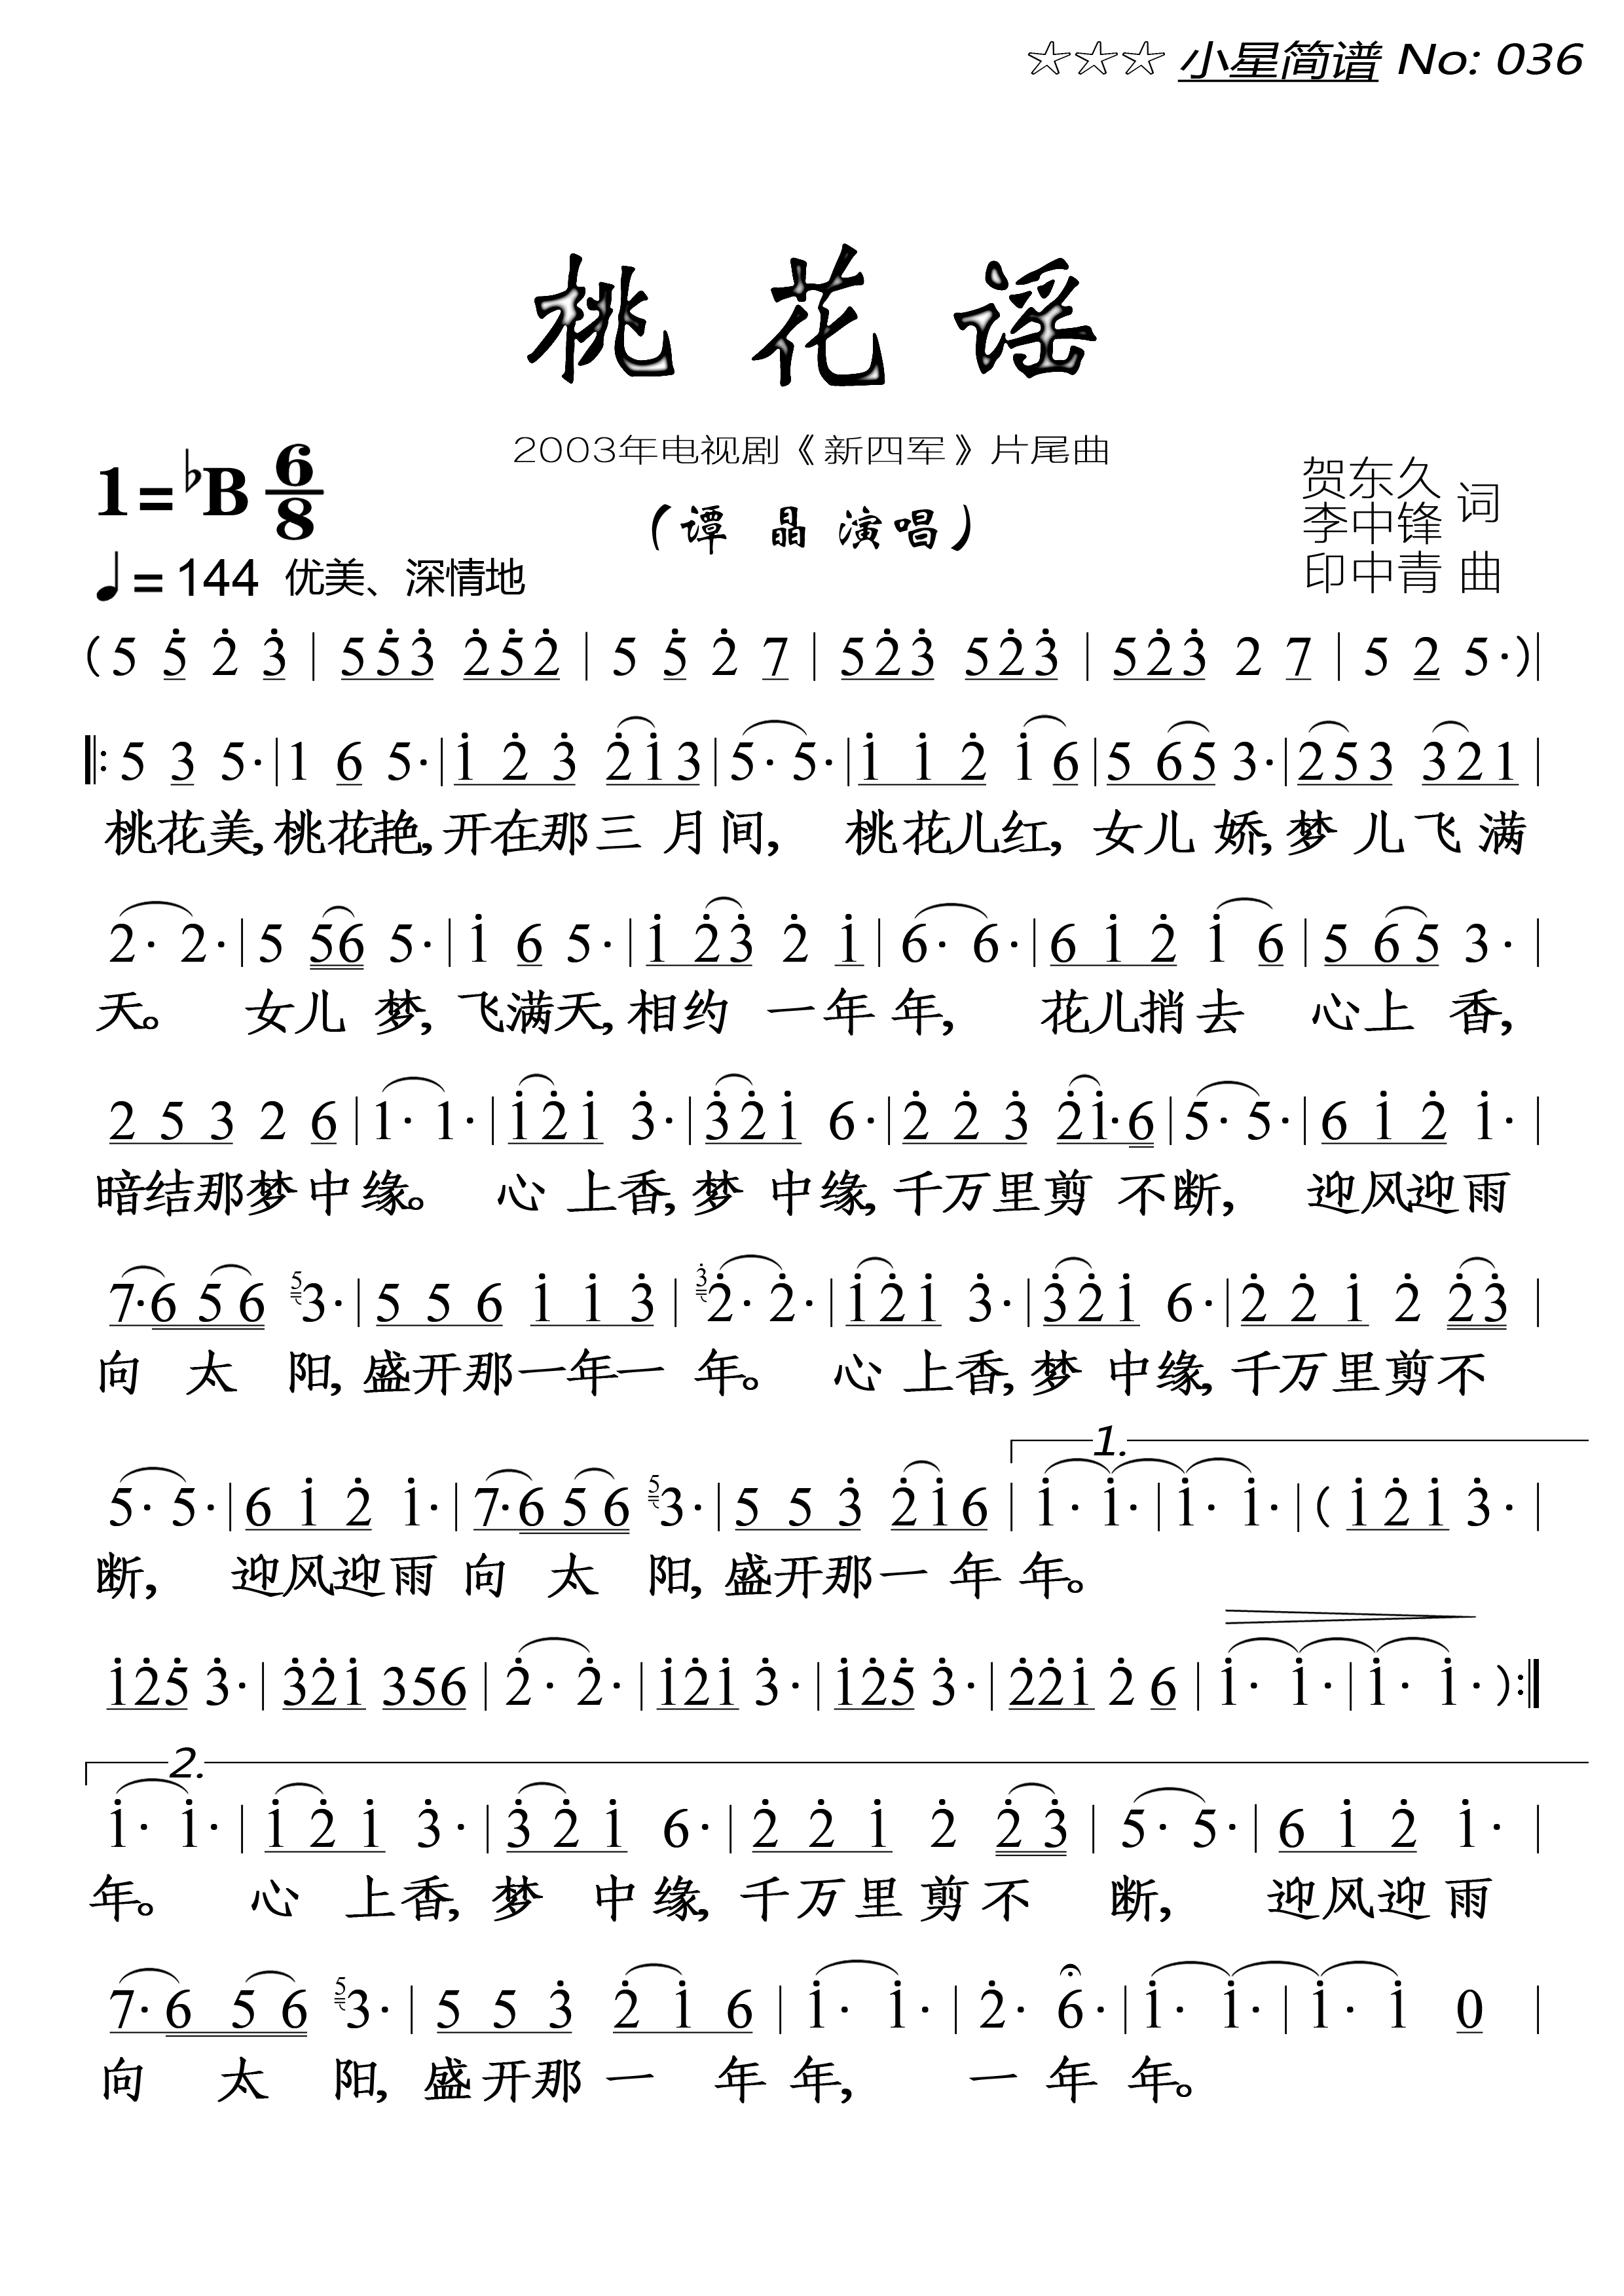 ☆☆☆ 小星简谱 No: 036
桃 花 谣
2003年电视剧《 新四军 》片尾曲
(谭 晶 演唱)
1=♭B 6/8
贺东久
李中锋 词
印中青 曲
♩= 144 优美、深情地
( 5 5̇ 2̇ 3̇ | 5 5̇ 3̇ 2̇ 5̇ 2̇ | 5 5̇ 2̇ 7 | 5 2̇ 3̇ 5 2̇ 3̇ | 5 2̇ 3̇ 2 7 | 5 2 5· ) |
‖: 5 3 5· | 1 6 5· | 1̇ 2̇ 3̇ 2̇ 1̇ 3 | 5· 5· | 1̇ 1̇ 2̇ 1̇ 6 | 5 6 5 3· | 2 5 3 3 2 1 |
桃花美, 桃花艳, 开在那三 月间, 桃花儿红, 女儿 娇, 梦 儿飞 满
2· 2· | 5 56 5· | 1̇ 6 5· | 1̇ 2̇ 3̇ 2̇ 1̇ | 6· 6· | 6 1̇ 2̇ 1̇ 6 | 5 6 5 3· |
天。 女儿 梦, 飞满天, 相约 一年 年, 花儿捎去 心上 香,
2 5 3 2 6 | 1· 1· | 1̇ 2̇ 1̇ 3̇· | 3̇ 2̇ 1̇ 6· | 2̇ 2̇ 3̇ 2̇ 1̇· 6 | 5· 5· | 6 1̇ 2̇ 1̇· |
暗结那梦中缘。 心 上香, 梦 中缘, 千万里剪 不断, 迎风迎雨
7· 6 5 6 5 3· | 5 5 6 1̇ 1̇ 3̇ | 3̇ 2̇· 2̇· | 1̇ 2̇ 1̇ 3̇· | 3̇ 2̇ 1̇ 6· | 2̇ 2̇ 1̇ 2̇ 2̇ 3̇ |
向 太 阳, 盛开那一年一 年。 心 上香, 梦 中缘, 千万里剪不
1.
5· 5· | 6 1̇ 2̇ 1̇· | 7· 6 5 6 5 3· | 5 5 3̇ 2̇ 1̇ 6 | 1̇· 1̇· | 1̇· 1̇· | ( 1̇ 2̇ 1̇ 3̇· |
断, 迎风迎雨 向 太 阳, 盛开那一 年 年。
1̇ 2̇ 5̇ 3̇· | 3̇ 2̇ 1̇ 3 5 6 | 2̇· 2̇· | 1̇ 2̇ 1̇ 3̇· | 1̇ 2̇ 5̇ 3̇· | 2̇ 2̇ 1̇ 2̇ 6 | 1̇· 1̇· | 1̇· 1̇· ) :‖
2.
1̇· 1̇· | 1̇ 2̇ 1̇ 3̇· | 3̇ 2̇ 1̇ 6· | 2̇ 2̇ 1̇ 2̇ 2̇ 3̇ | 5· 5· | 6 1̇ 2̇ 1̇· |
年。 心 上香, 梦 中缘, 千万里剪不 断, 迎风迎雨
7· 6 5 6 5 3· | 5 5 3̇ 2̇ 1̇ 6 | 1̇· 1̇· | 2̇· 6· | 1̇· 1̇· | 1̇· 1̇ 0 |
向 太 阳, 盛开那 一 年 年, 一 年 年。